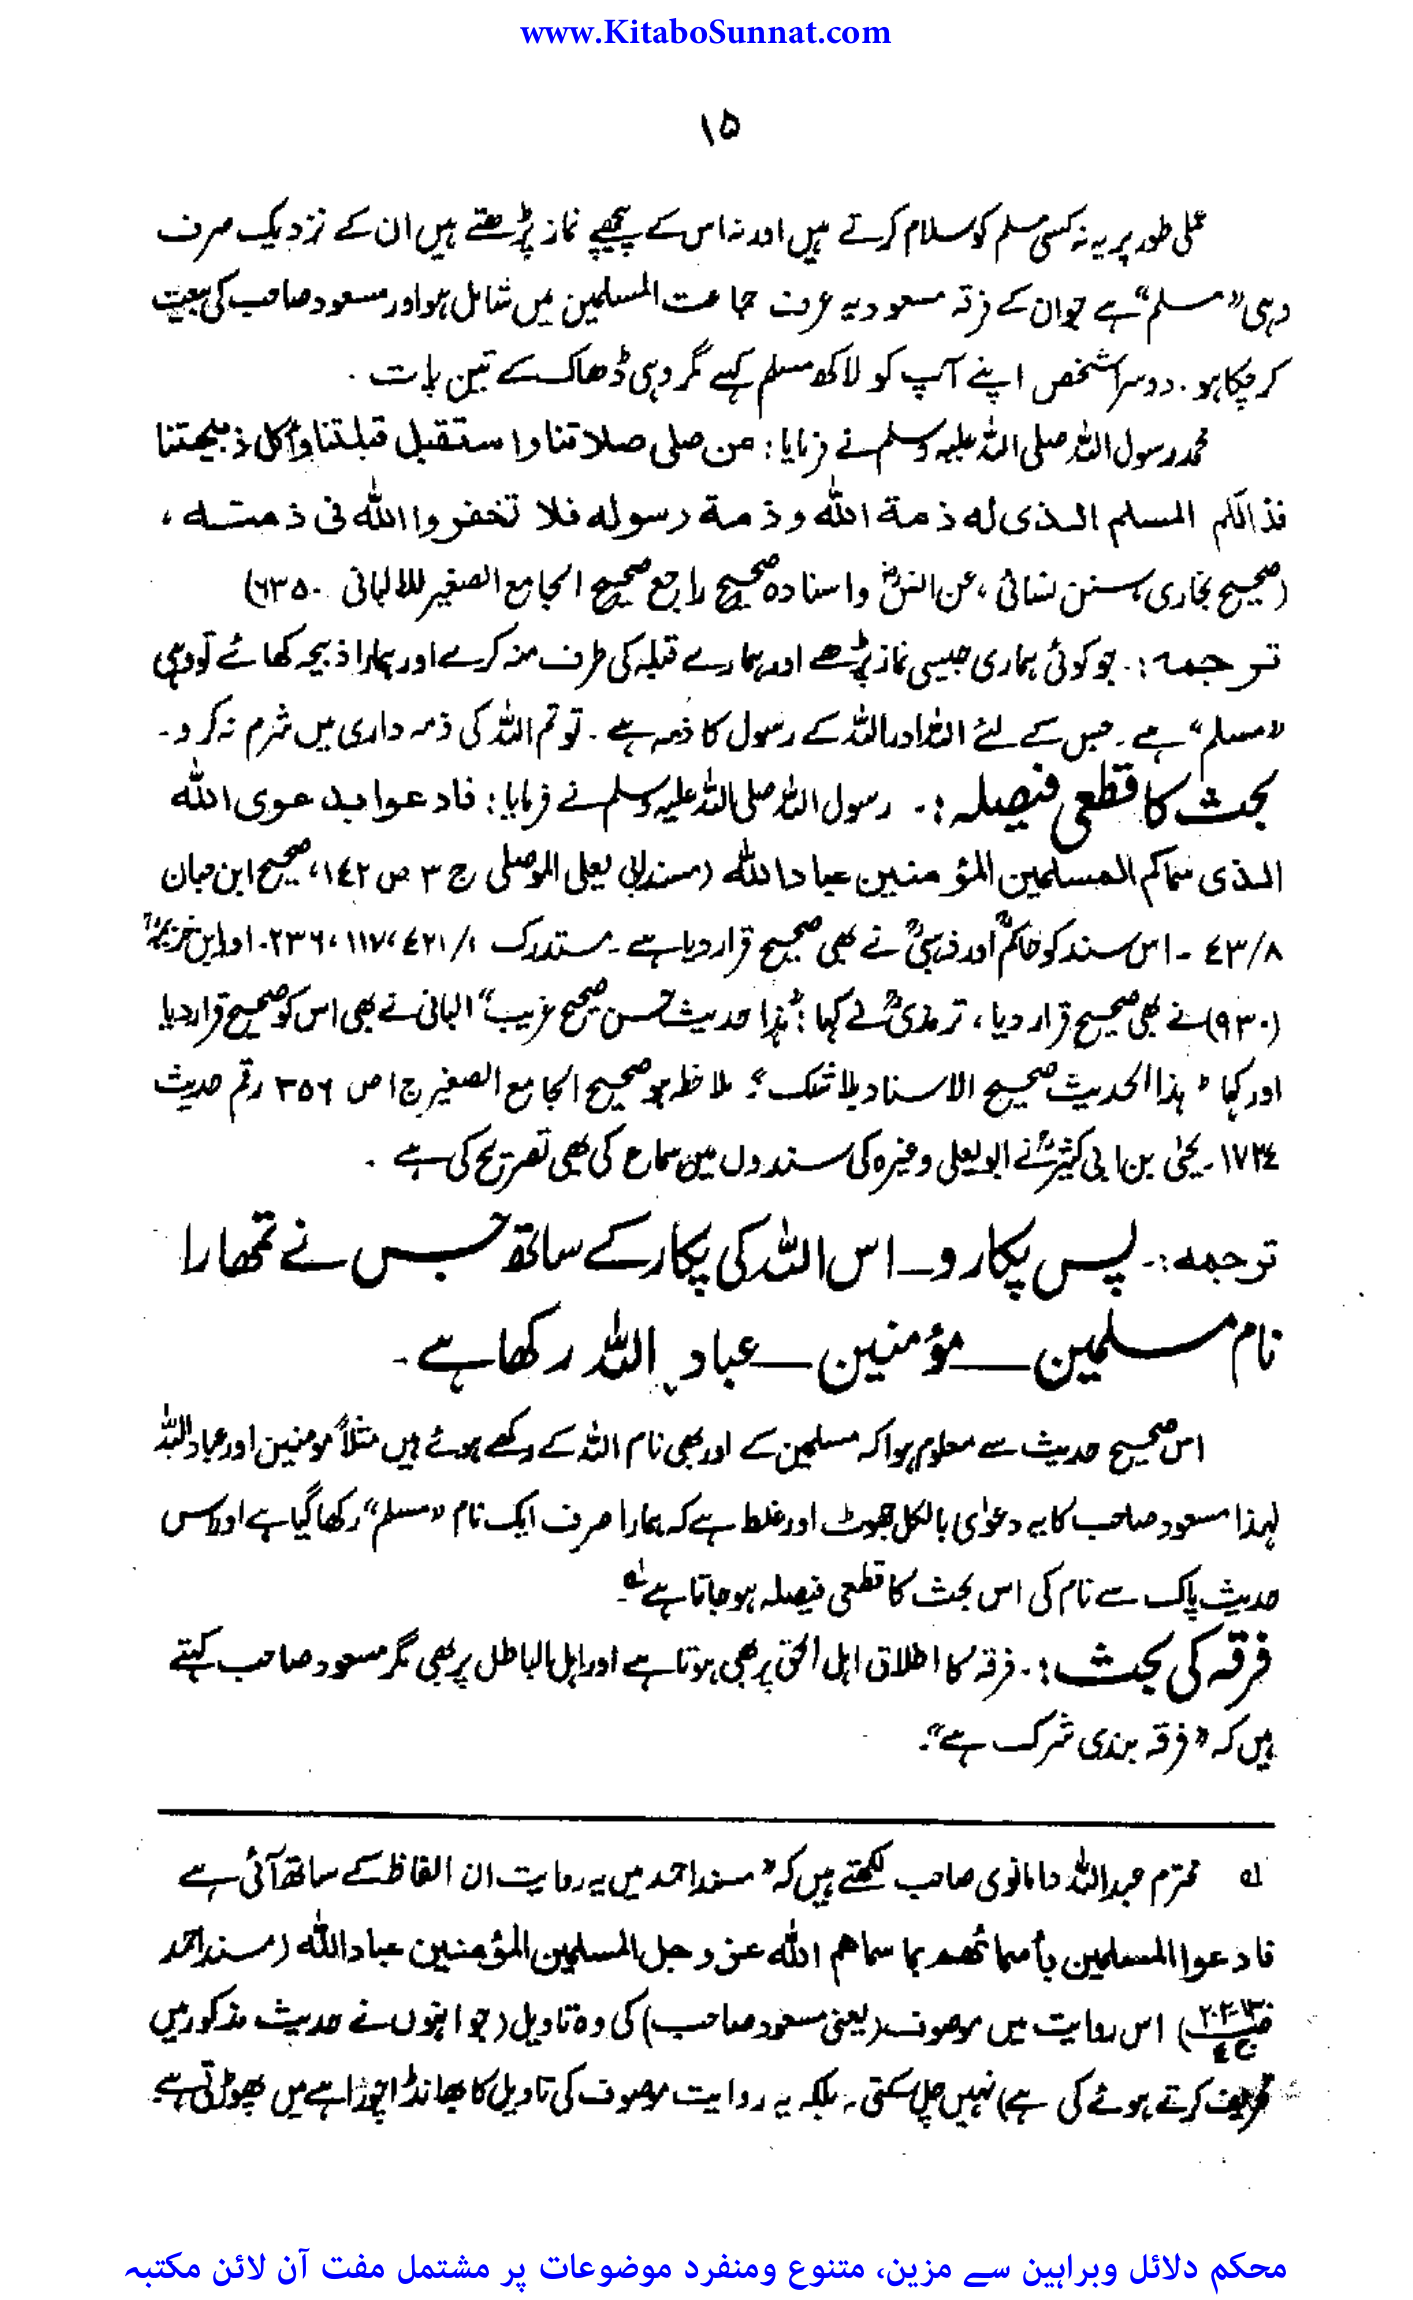 www.KitaboSunnat.com
۱۵
عملی طور پر یہ نہ کسی مسلم کو سلام کرتے ہیں اور نہ اس کے پیچھے نماز پڑھتے ہیں ان کے نزدیک صرف
وہی “مسلم” ہے جو ان کے فرقہ مسعودیہ عرف جماعت المسلمین میں شامل ہو اور مسعود صاحب کی بیعت
کر چکا ہو۔ دوسرا شخص اپنے آپ کو لاکھ مسلم کہے مگر وہی ڈھاک کے تین پات۔
محمد رسول اللہ صلی اللہ علیہ وسلم نے فرمایا: من صلی صلاتنا واستقبل قبلتنا وأکل ذبیحتنا
فذالکم المسلم الذی له ذمة الله وذمة رسوله فلا تخفروا الله فی ذمته،
(صحیح بخاری، سنن نسائی، عن انسؓ واسنادہ صحیح راجع صحیح الجامع الصغیر للالبانی ۶۳۵۰)
ترجمہ:۔ جو کوئی ہماری جیسی نماز پڑھے اور ہمارے قبلہ کی طرف منہ کرے اور ہمارا ذبیحہ کھائے تو وہی
“مسلم” ہے۔ جس کے لئے اللہ اور اللہ کے رسول کا ذمہ ہے۔ تو تم اللہ کی ذمہ داری میں شرم نہ کرو۔
بحث کا قطعی فیصلہ:۔ رسول اللہ صلی اللہ علیہ وسلم نے فرمایا: فادعوا بدعوی الله
الذی سماکم المسلمین المؤمنین عباد الله (مسند ابی یعلی الموصلی ج ۳ ص ۱٤۲، صحیح ابن حبان
۸/٤۳ ۔ اس سند کو حاکمؒ اور ذہبیؒ نے بھی صحیح قرار دیا ہے۔ مستدرک ۱/٤۲۱، ۱۱۷، ۲۳۶۔ اور ابن خزیمہؒ
(۹۳۰) نے بھی صحیح قرار دیا، ترمذیؒ نے کہا: “ہذا حدیث حسن صحیح غریب” البانی نے بھی اس کو صحیح قرار دیا
اور کہا “ہذا الحدیث صحیح الاسناد بلا شک”۔ ملاحظہ ہو صحیح الجامع الصغیر ج ۱ ص ۳۵۶ رقم حدیث
۱۷۲٤۔ یحیٰی بن ابی کثیرؒ نے ابو یعلی وغیرہ کی سندوں میں سماع کی بھی تصریح کی ہے۔
ترجمہ:۔ پس پکارو۔ اس اللہ کی پکار کے ساتھ جس نے تمھارا
نام مسلمین — مؤمنین — عباد اللہ رکھا ہے۔
اس صحیح حدیث سے معلوم ہوا کہ مسلمین کے اور بھی نام اللہ کے رکھے ہوئے ہیں مثلاً مومنین اور عباد اللہ
لہذا مسعود صاحب کا یہ دعوٰی بالکل جھوٹ اور غلط ہے کہ ہمارا صرف ایک نام “مسلم” رکھا گیا ہے اور اس
حدیث پاک سے نام کی اس بحث کا قطعی فیصلہ ہو جاتا ہے۔ لہ
فرقہ کی بحث:۔ فرقہ کا اطلاق اہل الحق پر بھی ہوتا ہے اور اہل الباطل پر بھی مگر مسعود صاحب کہتے
ہیں کہ “فرقہ بندی شرک ہے”۔
لہ محترم عبداللہ دامانوی صاحب لکھتے ہیں کہ “مسند احمد میں یہ روایت ان الفاظ کے ساتھ آئی ہے
فادعوا المسلمین بأسمائهم بما سماهم الله عز وجل المسلمین المؤمنین عباد الله (مسند احمد
ج٤) اس روایت میں موصوف (یعنی مسعود صاحب) کی وہ تاویل (جو انہوں نے حدیث مذکور میں
تحریف کرتے ہوئے کی ہے) نہیں چل سکتی۔ بلکہ یہ روایت موصوف کی تاویل کا بھانڈا چوراہے میں پھوڑتی ہے
محکم دلائل وبراہین سے مزین، متنوع ومنفرد موضوعات پر مشتمل مفت آن لائن مکتبہ